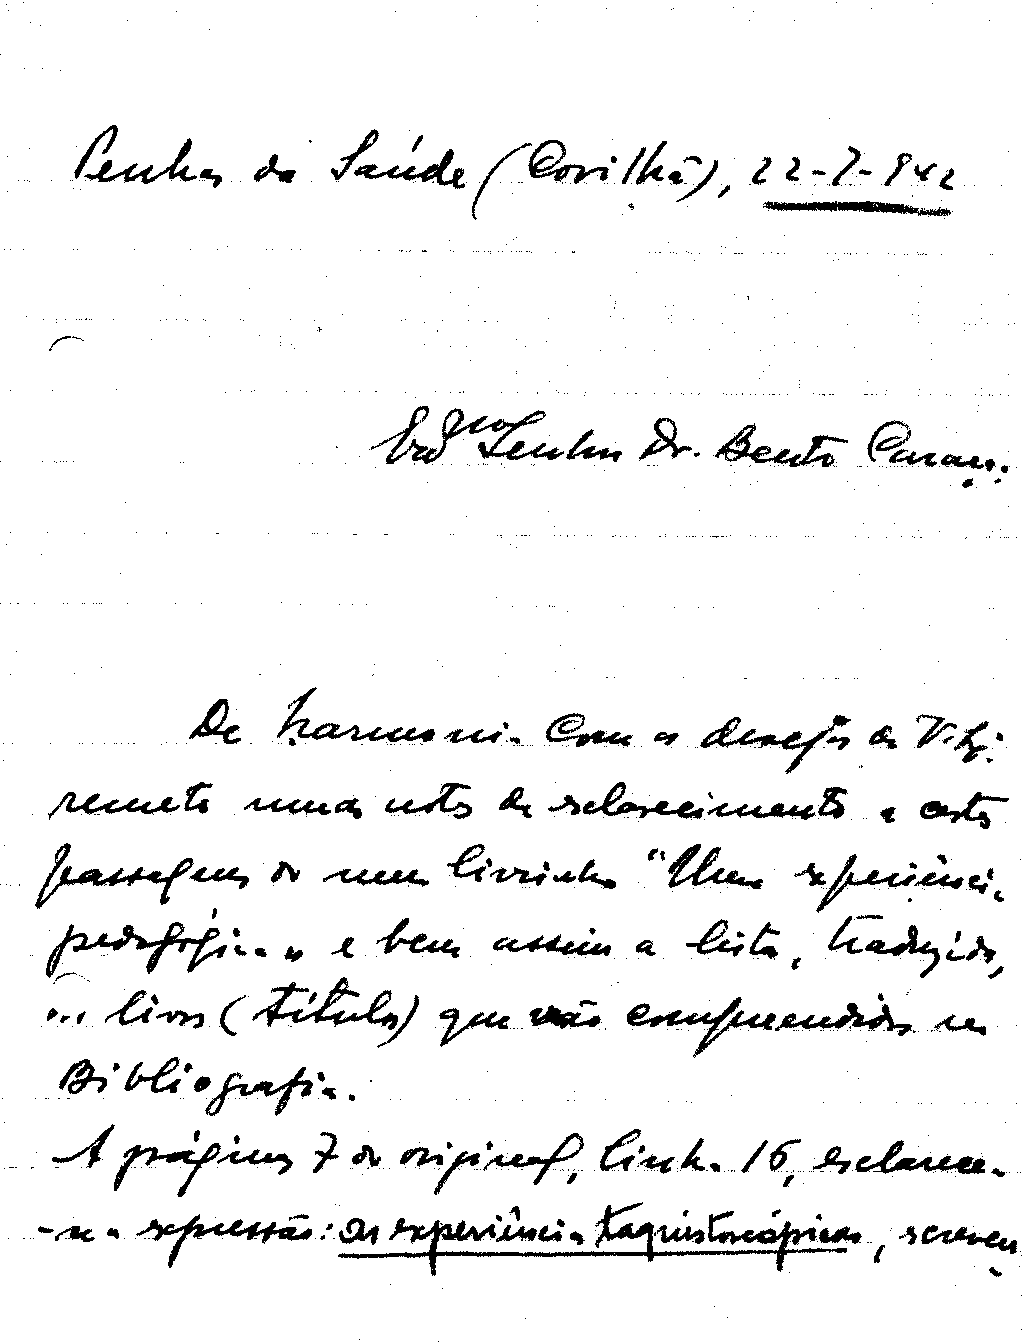 Penhas da Saúde (Covilhã), 22-7-942
Exmo Senhor Dr. Bento Caraça:
De harmonia com os desejos de V. Ex.
remeto umas notas de esclarecimento a certas
passagens do meu livrinho "Uma experiência
pedagógica" e bem assim a lista, traduzida,
... livros (títulos) que vão compreendidos na
Bibliografia.
A páginas 7 do original, linha 16, esclarece-
-se a expressão: as experiências taquistoscópicas, escreven